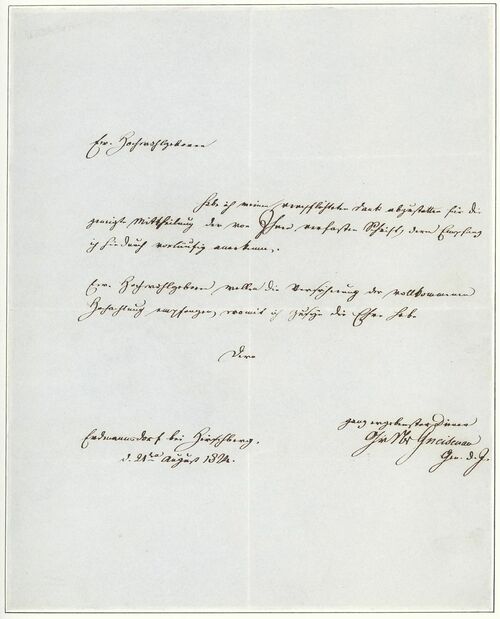 Ew. Hochwohlgeboren
habe ich meinen verpflichteten Dank abzustatten für die
geneigte Mittheilung der von Ihnen verfaßten Schrift, deren Empfang
ich hiedurch vorläufig anerkenne.
Ew. Hochwohlgeboren wollen die Versicherung der vollkommenen
Hochachtung empfangen, womit ich zu seyn die Ehre habe
Dero
ganz ergebenster Diener
Gr N v Gneisenau
Gen. d. J.
Erdmannsdorf bei Hirschberg,
d. August